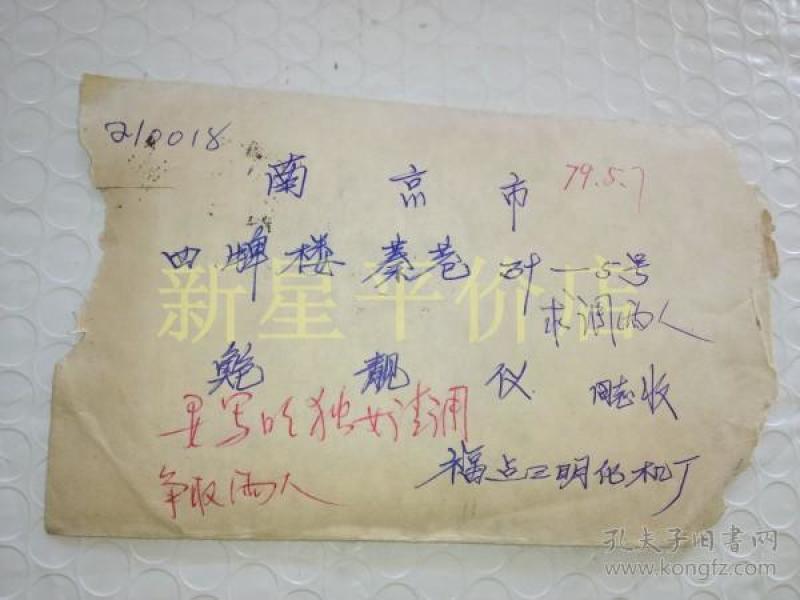 210018
南京市
79.5.7
四牌楼 蓁巷 39—5号
求调两人
鲍靓仪 同志收
要写明独女请调
争取两人
福建三明化机厂
新星平价店
孔夫子旧书网
www.kongfz.com